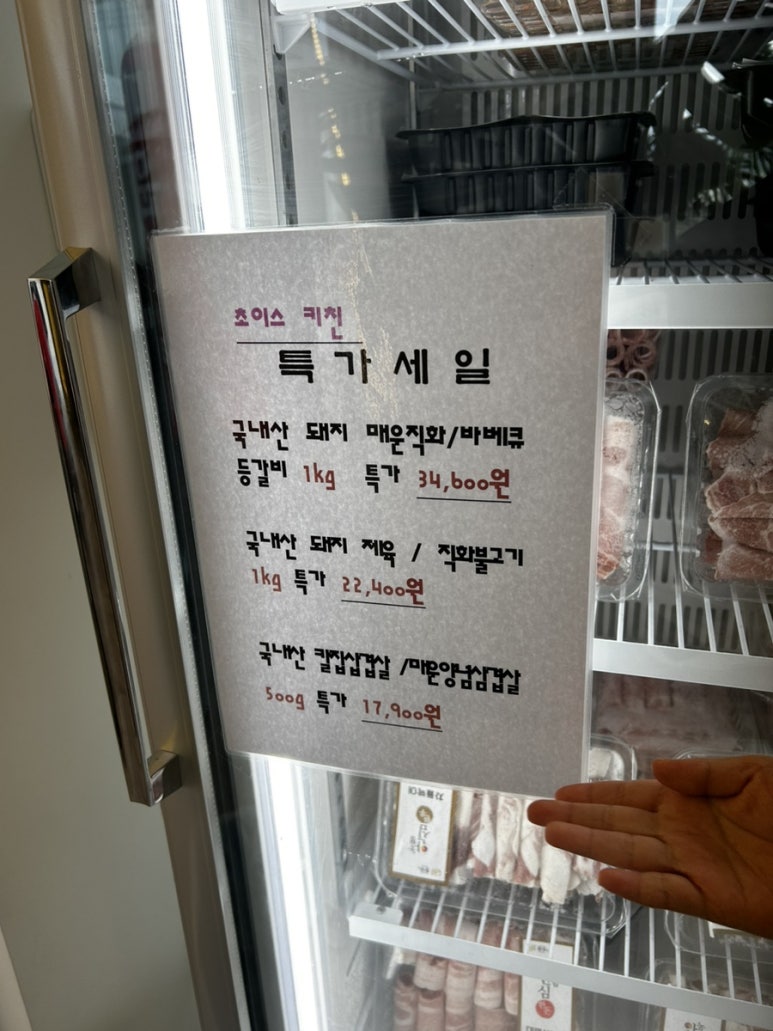 초이스 키친
특가세일
국내산 돼지 매운직화/바베큐
등갈비 1kg 특가 34,600원
국내산 돼지 제육 / 직화불고기
1kg 특가 22,400원
국내산 칼집삼겹살 /매운양념삼겹살
500g 특가 17,900원